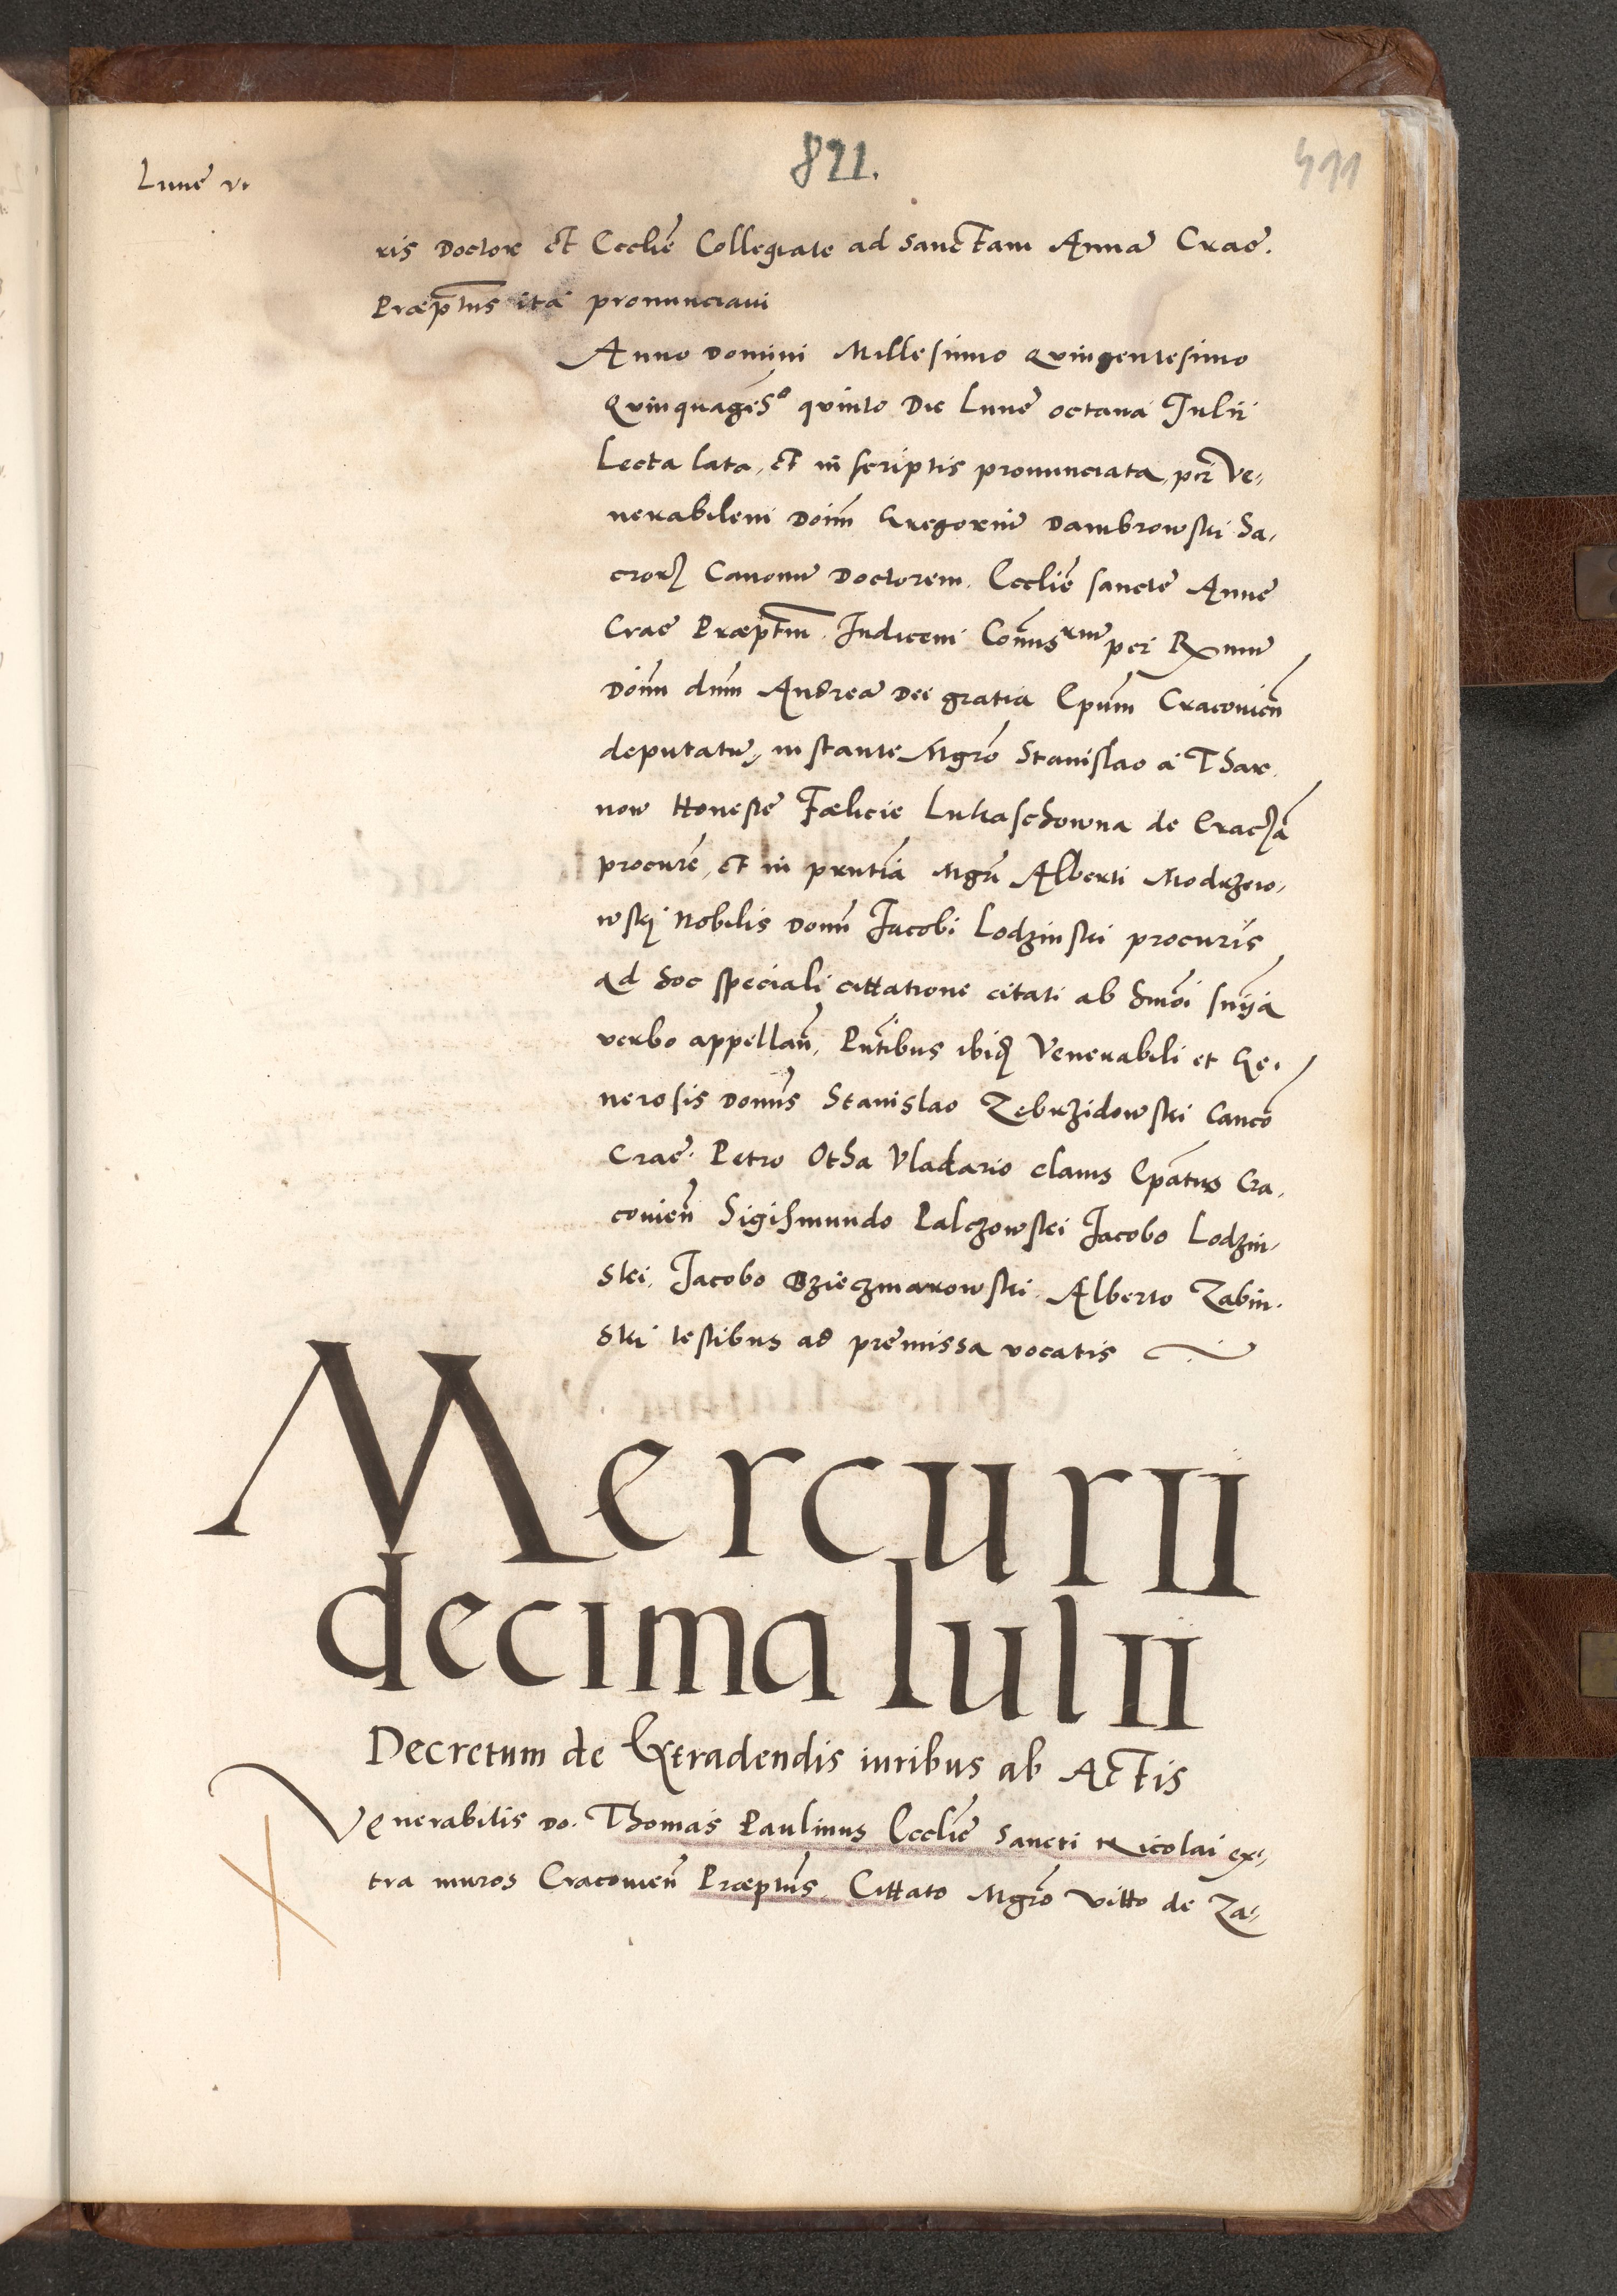 821.
411
Lunę v.
ris Doctor et Eccliē Collegiate ad sanctam Annā Crac.
Præptus ita pronunciavi
Anno Domini Millesimo Quingentesimo
Quinquagēs° quinto Die Lunę octava Julii
Lecta lata, et in scriptis pronunciata, per Ve„
nerabilem Doim̄ Gregoriū Dambrowski Sa,
croꝝ Canonū Doctorem, Eccliē sanctę Annę
Crac Præptm̄ Judicem Com̄isriū per Rx̄mū
Doim̄ dnm̄ Andreā Dei gratia Epūm Cracovień
deputatū, instante Mgrō Stanislao à Thar,
now Honestę Fœlicię Lukaschowna de Cracꝝā
procurē, et in prntiā Mgrī Alberti Modrzew,
wskị Nobilis Domī Jacobi Lodzinski procurīs
ad hoc speciali cittatione citati ab hm̄oi sn̄iā
verbo appellań, Pn̄tibus ibiđ Venerabili et Ge,
nerosis Domīs Stanislao Zebrzidowski Canco
Crac. Petro Otha Vladario clavis Epātus Cra,
covień Sigismundo Palczowski Jacobo Lodzin,
ski, Jacobo Dzieczmarowski, Alberto Zabin,
ski testibus ad pręmissa vocatis
Mercurii
decima Iulii
Decretum de Extradendis iuribus ab Actis
Venerabilis Do. Thomas Paulinus Eccliē Sancti Nicolai ex„
tra muros Cracovień Præptus, Cittato Mgrō Vitto de Za„